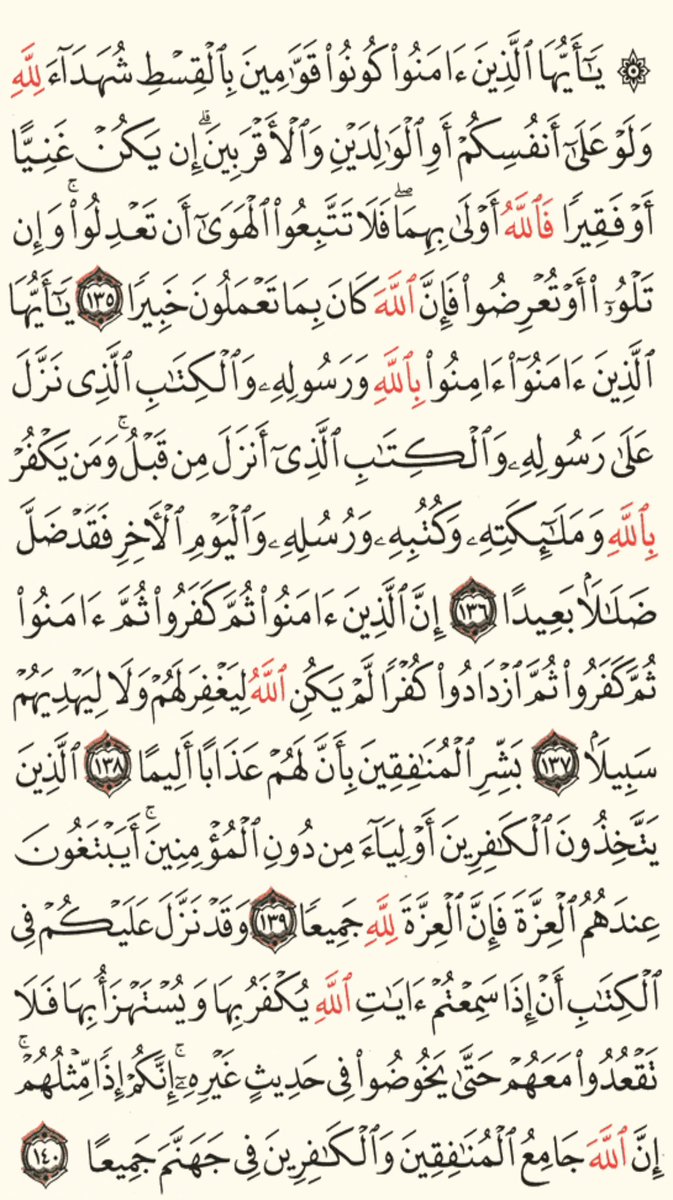 ۞ يَـٰٓأَيُّهَا ٱلَّذِينَ ءَامَنُوا۟ كُونُوا۟ قَوَّٰمِينَ بِٱلْقِسْطِ شُهَدَآءَ لِلَّهِ
وَلَوْ عَلَىٰٓ أَنفُسِكُمْ أَوِ ٱلْوَٰلِدَيْنِ وَٱلْأَقْرَبِينَ ۚ إِن يَكُنْ غَنِيًّا
أَوْ فَقِيرًا فَٱللَّهُ أَوْلَىٰ بِهِمَا ۖ فَلَا تَتَّبِعُوا۟ ٱلْهَوَىٰٓ أَن تَعْدِلُوا۟ ۚ وَإِن
تَلْوُۥٓا۟ أَوْ تُعْرِضُوا۟ فَإِنَّ ٱللَّهَ كَانَ بِمَا تَعْمَلُونَ خَبِيرًا ١٣٥ يَـٰٓأَيُّهَا
ٱلَّذِينَ ءَامَنُوٓا۟ ءَامِنُوا۟ بِٱللَّهِ وَرَسُولِهِۦ وَٱلْكِتَـٰبِ ٱلَّذِى نَزَّلَ
عَلَىٰ رَسُولِهِۦ وَٱلْكِتَـٰبِ ٱلَّذِىٓ أَنزَلَ مِن قَبْلُ ۚ وَمَن يَكْفُرْ
بِٱللَّهِ وَمَلَـٰٓئِكَتِهِۦ وَكُتُبِهِۦ وَرُسُلِهِۦ وَٱلْيَوْمِ ٱلْـَٔاخِرِ فَقَدْ ضَلَّ
ضَلَـٰلًۢا بَعِيدًا ١٣٦ إِنَّ ٱلَّذِينَ ءَامَنُوا۟ ثُمَّ كَفَرُوا۟ ثُمَّ ءَامَنُوا۟
ثُمَّ كَفَرُوا۟ ثُمَّ ٱزْدَادُوا۟ كُفْرًا لَّمْ يَكُنِ ٱللَّهُ لِيَغْفِرَ لَهُمْ وَلَا لِيَهْدِيَهُمْ
سَبِيلًۢا ١٣٧ بَشِّرِ ٱلْمُنَـٰفِقِينَ بِأَنَّ لَهُمْ عَذَابًا أَلِيمًا ١٣٨ ٱلَّذِينَ
يَتَّخِذُونَ ٱلْكَـٰفِرِينَ أَوْلِيَآءَ مِن دُونِ ٱلْمُؤْمِنِينَ ۚ أَيَبْتَغُونَ
عِندَهُمُ ٱلْعِزَّةَ فَإِنَّ ٱلْعِزَّةَ لِلَّهِ جَمِيعًا ١٣٩ وَقَدْ نَزَّلَ عَلَيْكُمْ فِى
ٱلْكِتَـٰبِ أَنْ إِذَا سَمِعْتُمْ ءَايَـٰتِ ٱللَّهِ يُكْفَرُ بِهَا وَيُسْتَهْزَأُ بِهَا فَلَا
تَقْعُدُوا۟ مَعَهُمْ حَتَّىٰ يَخُوضُوا۟ فِى حَدِيثٍ غَيْرِهِۦٓ ۚ إِنَّكُمْ إِذًا مِّثْلُهُمْ ۗ
إِنَّ ٱللَّهَ جَامِعُ ٱلْمُنَـٰفِقِينَ وَٱلْكَـٰفِرِينَ فِى جَهَنَّمَ جَمِيعًا ١٤٠